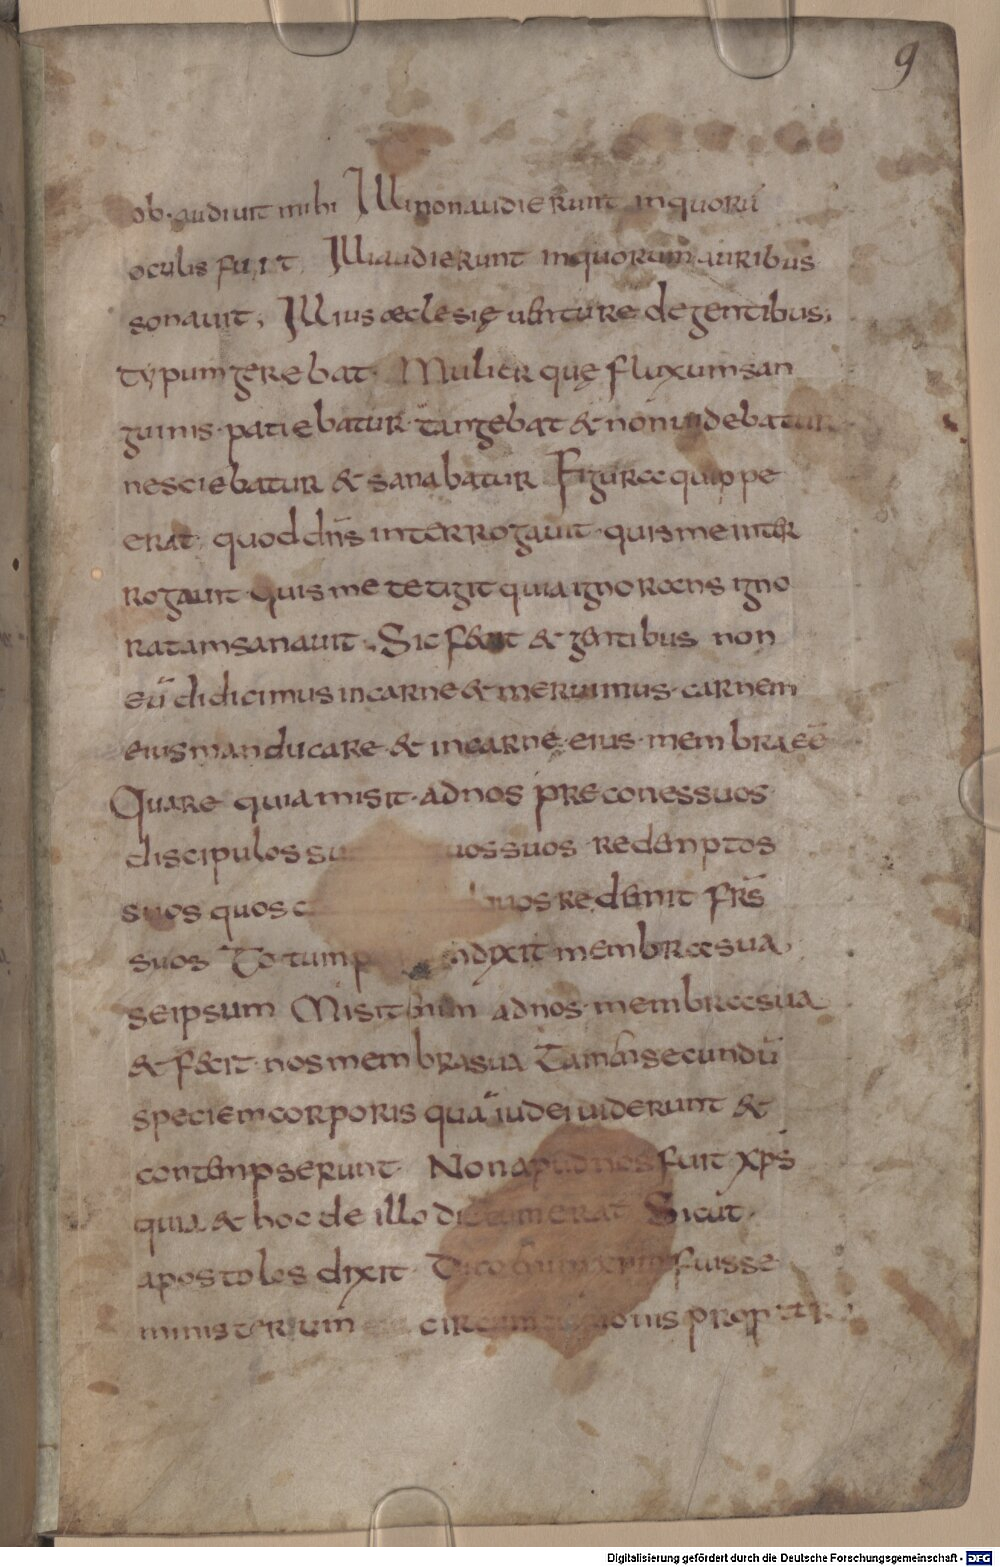 9
ob·audiuit mihi Illi non audierunt in quorū
oculis fuit Illi audierunt in quorum auribus
sonauit, Illius æclesię uenture de gentibus;
typum gerebat· Mulier quę fluxum san
guinis· patiebatur· tangebat & non uidebatur
nesciebatur & sanabatur Figura quippe
erat, quod dn̄s interrogauit· quis me inter
rogauit quis me tetigit quia ignorans igno
ratam sanauit·, Sic fecit & gentibus non
eū didicimus in carne & meruimus· carnem
eius manducare· & in carne eius· membra eē
Quare quia misit· ad nos preconessuos·
discipulos su uos suos· redemptos
suos quos c nos redemit fr̄s
suos Totum p dixit membra sua,
se ipsum Misit enim ad nos· membra sua
& fecit· nos membra sua Tamen secundū
speciem corporis quā iudei uiderunt &
contempserunt· Non apud nos fuit xp̄s
quia & hoc de illo dictum erat Sicut·
apostolos dixit· Dico enim xpm fuisse
ministerium circumcisionis propter
Digitalisierung gefördert durch die Deutsche Forschungsgemeinschaft - DFG